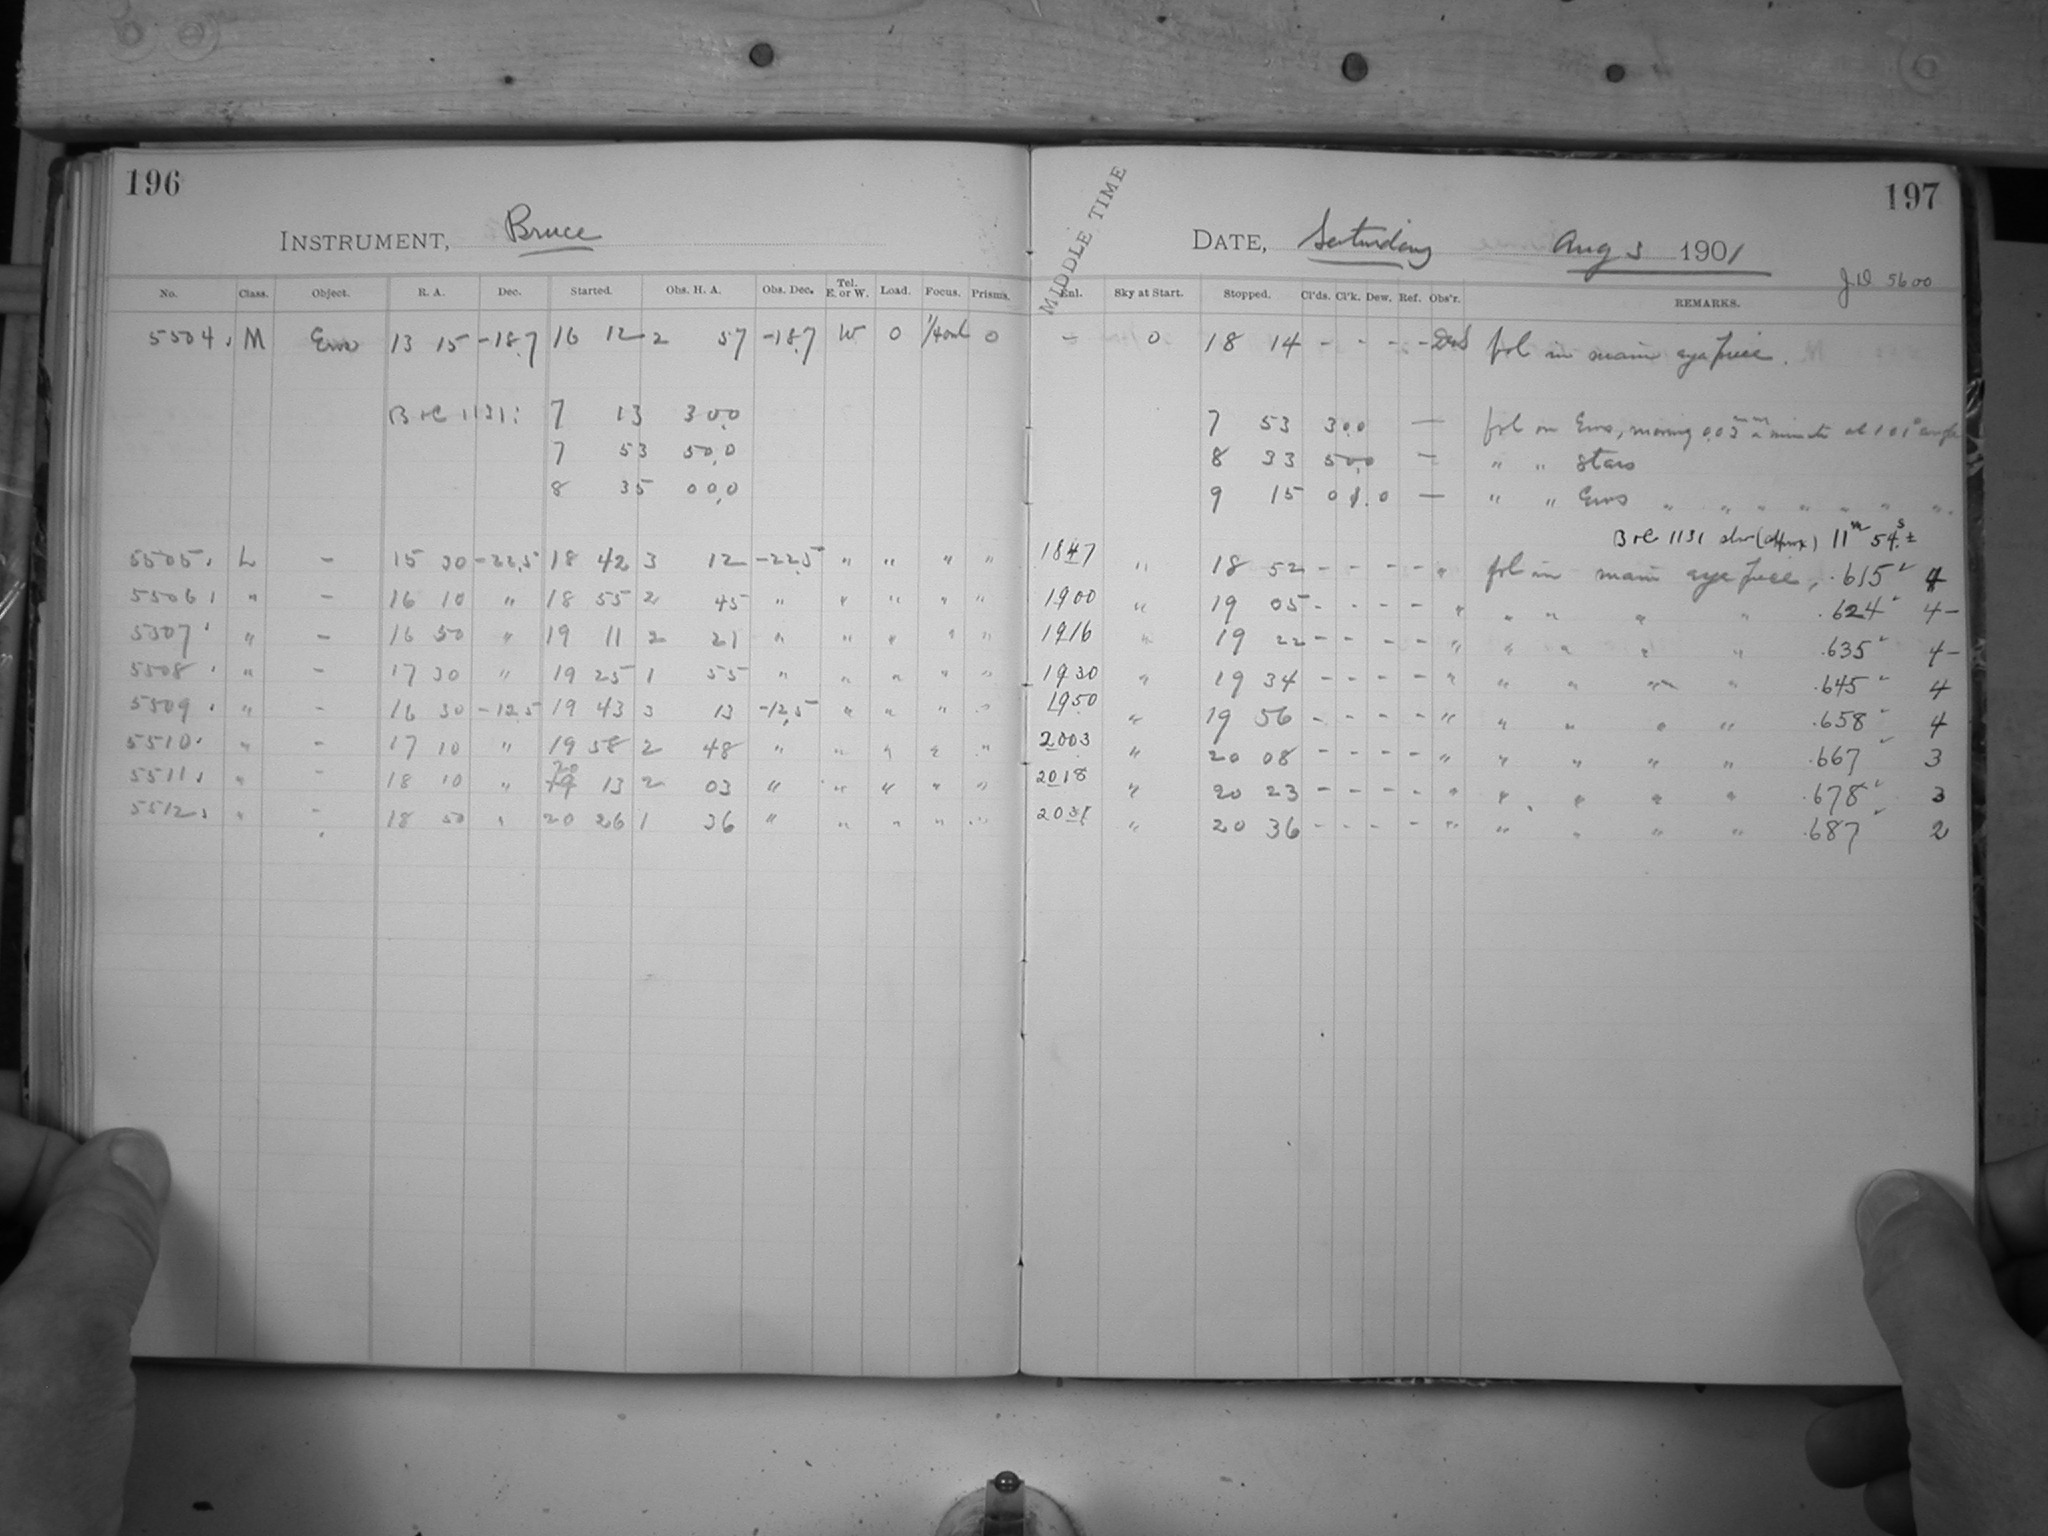 196
INSTRUMENT, Bruce
No. Class. Object. R. A. Dec. Started. Obs. H. A. Obs. Dec. Tel. E. or W. Load. Focus. Prisms.
5504. M Eros 13 15 -18.7 16 12 2 57 -18.7 W 0 0
B+C 1131: 7 13 30.0
7 53 50.0
8 35 00.0
5505. L - 15 30 -22.5 18 42 3 12 -22.5 " " " "
5506. " - 16 10 " 18 55 2 45 " " " " "
5507. " - 16 50 " 19 11 2 21 " " " " "
5508. " - 17 30 " 19 25 1 55 " " " " "
5509. " - 16 30 -12.5 19 43 3 13 -12.5 " " " "
5510. " - 17 10 " 19 58 2 48 " " " " "
5511. " - 18 10 " 20 13 2 03 " " " " "
5512. " - 18 50 " 20 26 1 36 " " " " "
197
MIDDLE TIME
DATE, Saturday Aug 3 1901
J D 5600
Enl. Sky at Start. Stopped. Cl'ds. Cl'k. Dew. Ref. Obs'r. REMARKS.
- 0 18 14 - - - - fol in main eye piece.
7 53 30.0 — fol on Eros, moving 0.03 mm a minute at 101° angle
8 33 50.0 — " " stars
9 15 01.0 — " " Eros " " " " " " " "
B+C 1131 slow (approx) 11m 54s ±
1847 " 18 52 - - - - " fol in main eye piece, .615 4
1900 " 19 05 - - - - " " " " " .624 4-
1916 " 19 22 - - - - " " " " " .635 4-
1930 " 19 34 - - - - " " " " " .645 4
1950 " 19 56 - - - - " " " " " .658 4
2003 " 20 08 - - - - " " " " " .667 3
2018 " 20 23 - - - - " " " " " .678 3
2031 " 20 36 - - - - " " " " " .687 2